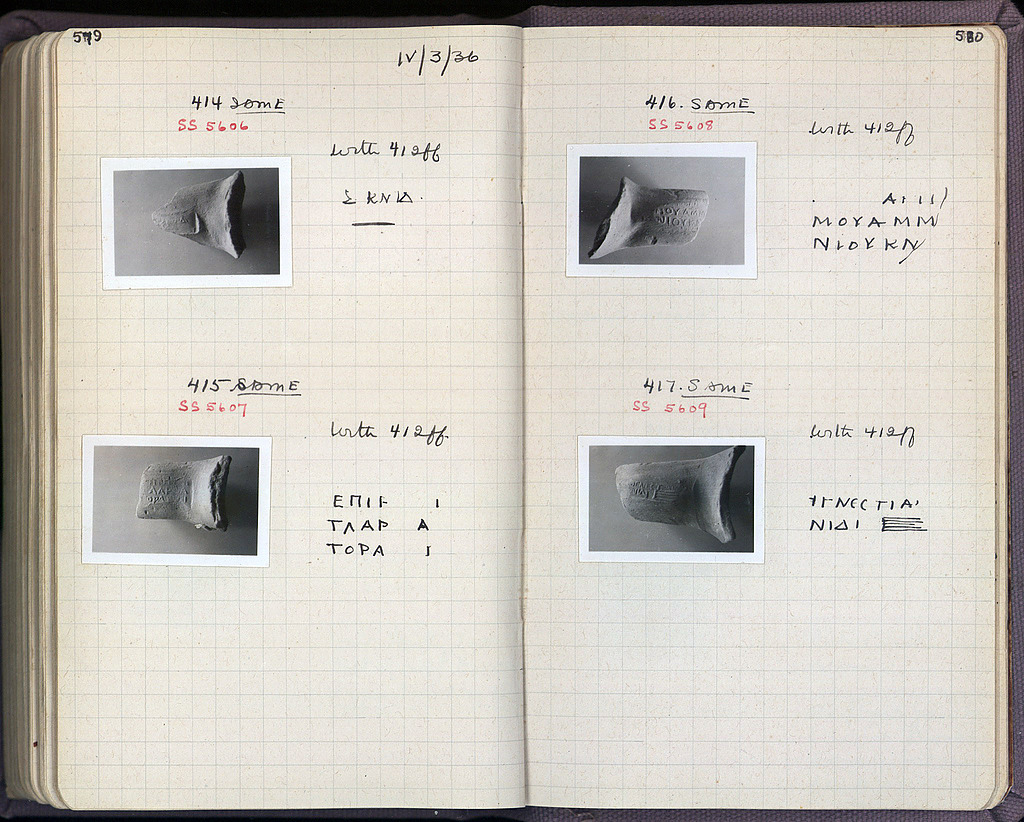 579
IV/3/36
414 SAME
SS 5606
with 412ff
Σ ΚΝΙΔ.
415 SAME
SS 5607
with 412ff.
ΕΠΙΓ Ι
ΤΛΑΡ Α
ΤΟΡΑ Ι
580
416. SAME
SS 5608
with 412ff
ΜΟΥΑΜΜ
ΝΙΟΥΚΝ
417. SAME
SS 5609
with 412ff
ΝΙΔΙ